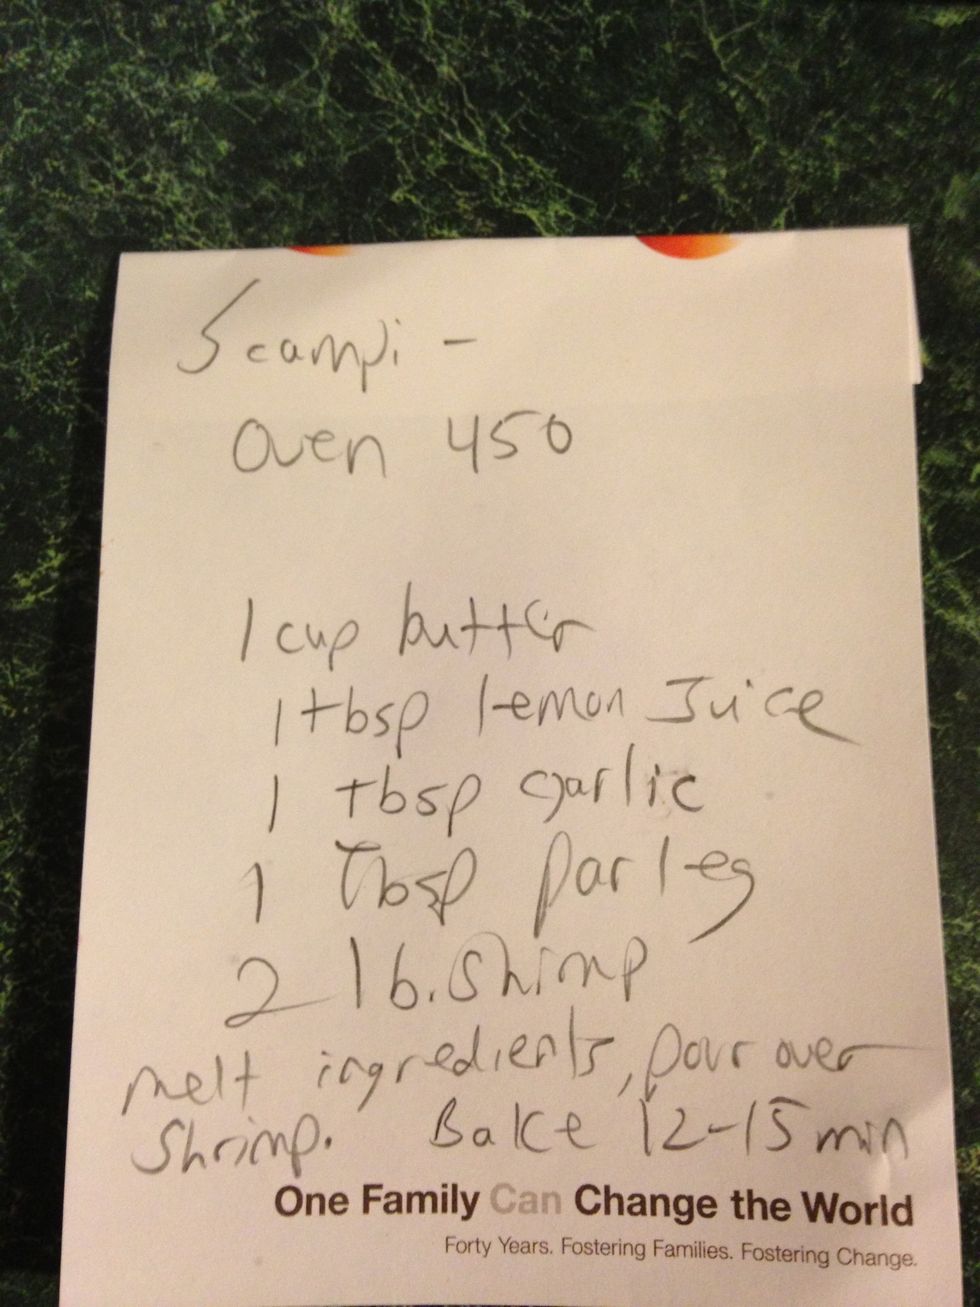 Scampi -
Oven 450
1 cup butter
1 tbsp lemon Juice
1 tbsp garlic
1 Tbsp parleg
2 lb. Shrimp
melt ingredients, pour over
Shrimp. Bake 12-15 min
One Family Can Change the World
Forty Years. Fostering Families. Fostering Change.